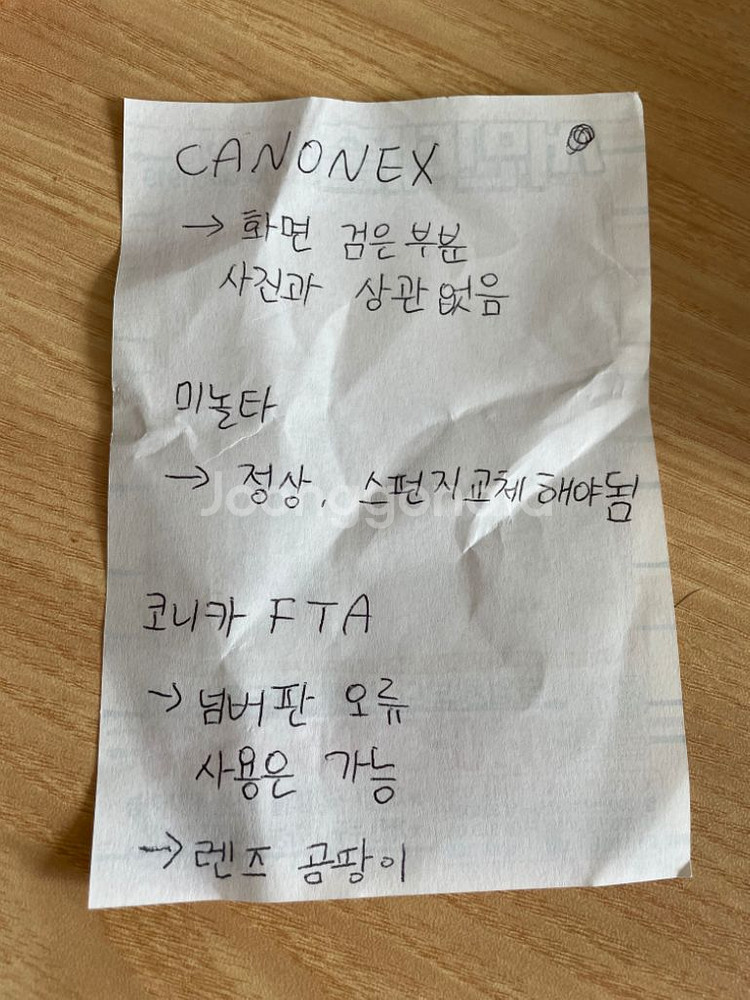 CANONEX
→ 화면 검은 부분
사진과 상관없음
미놀타
→ 정상, 스펀지교체해야됨
Joonggonara
코니카 FTA
→ 넘버판 오류
사용은 가능
→ 렌즈 곰팡이